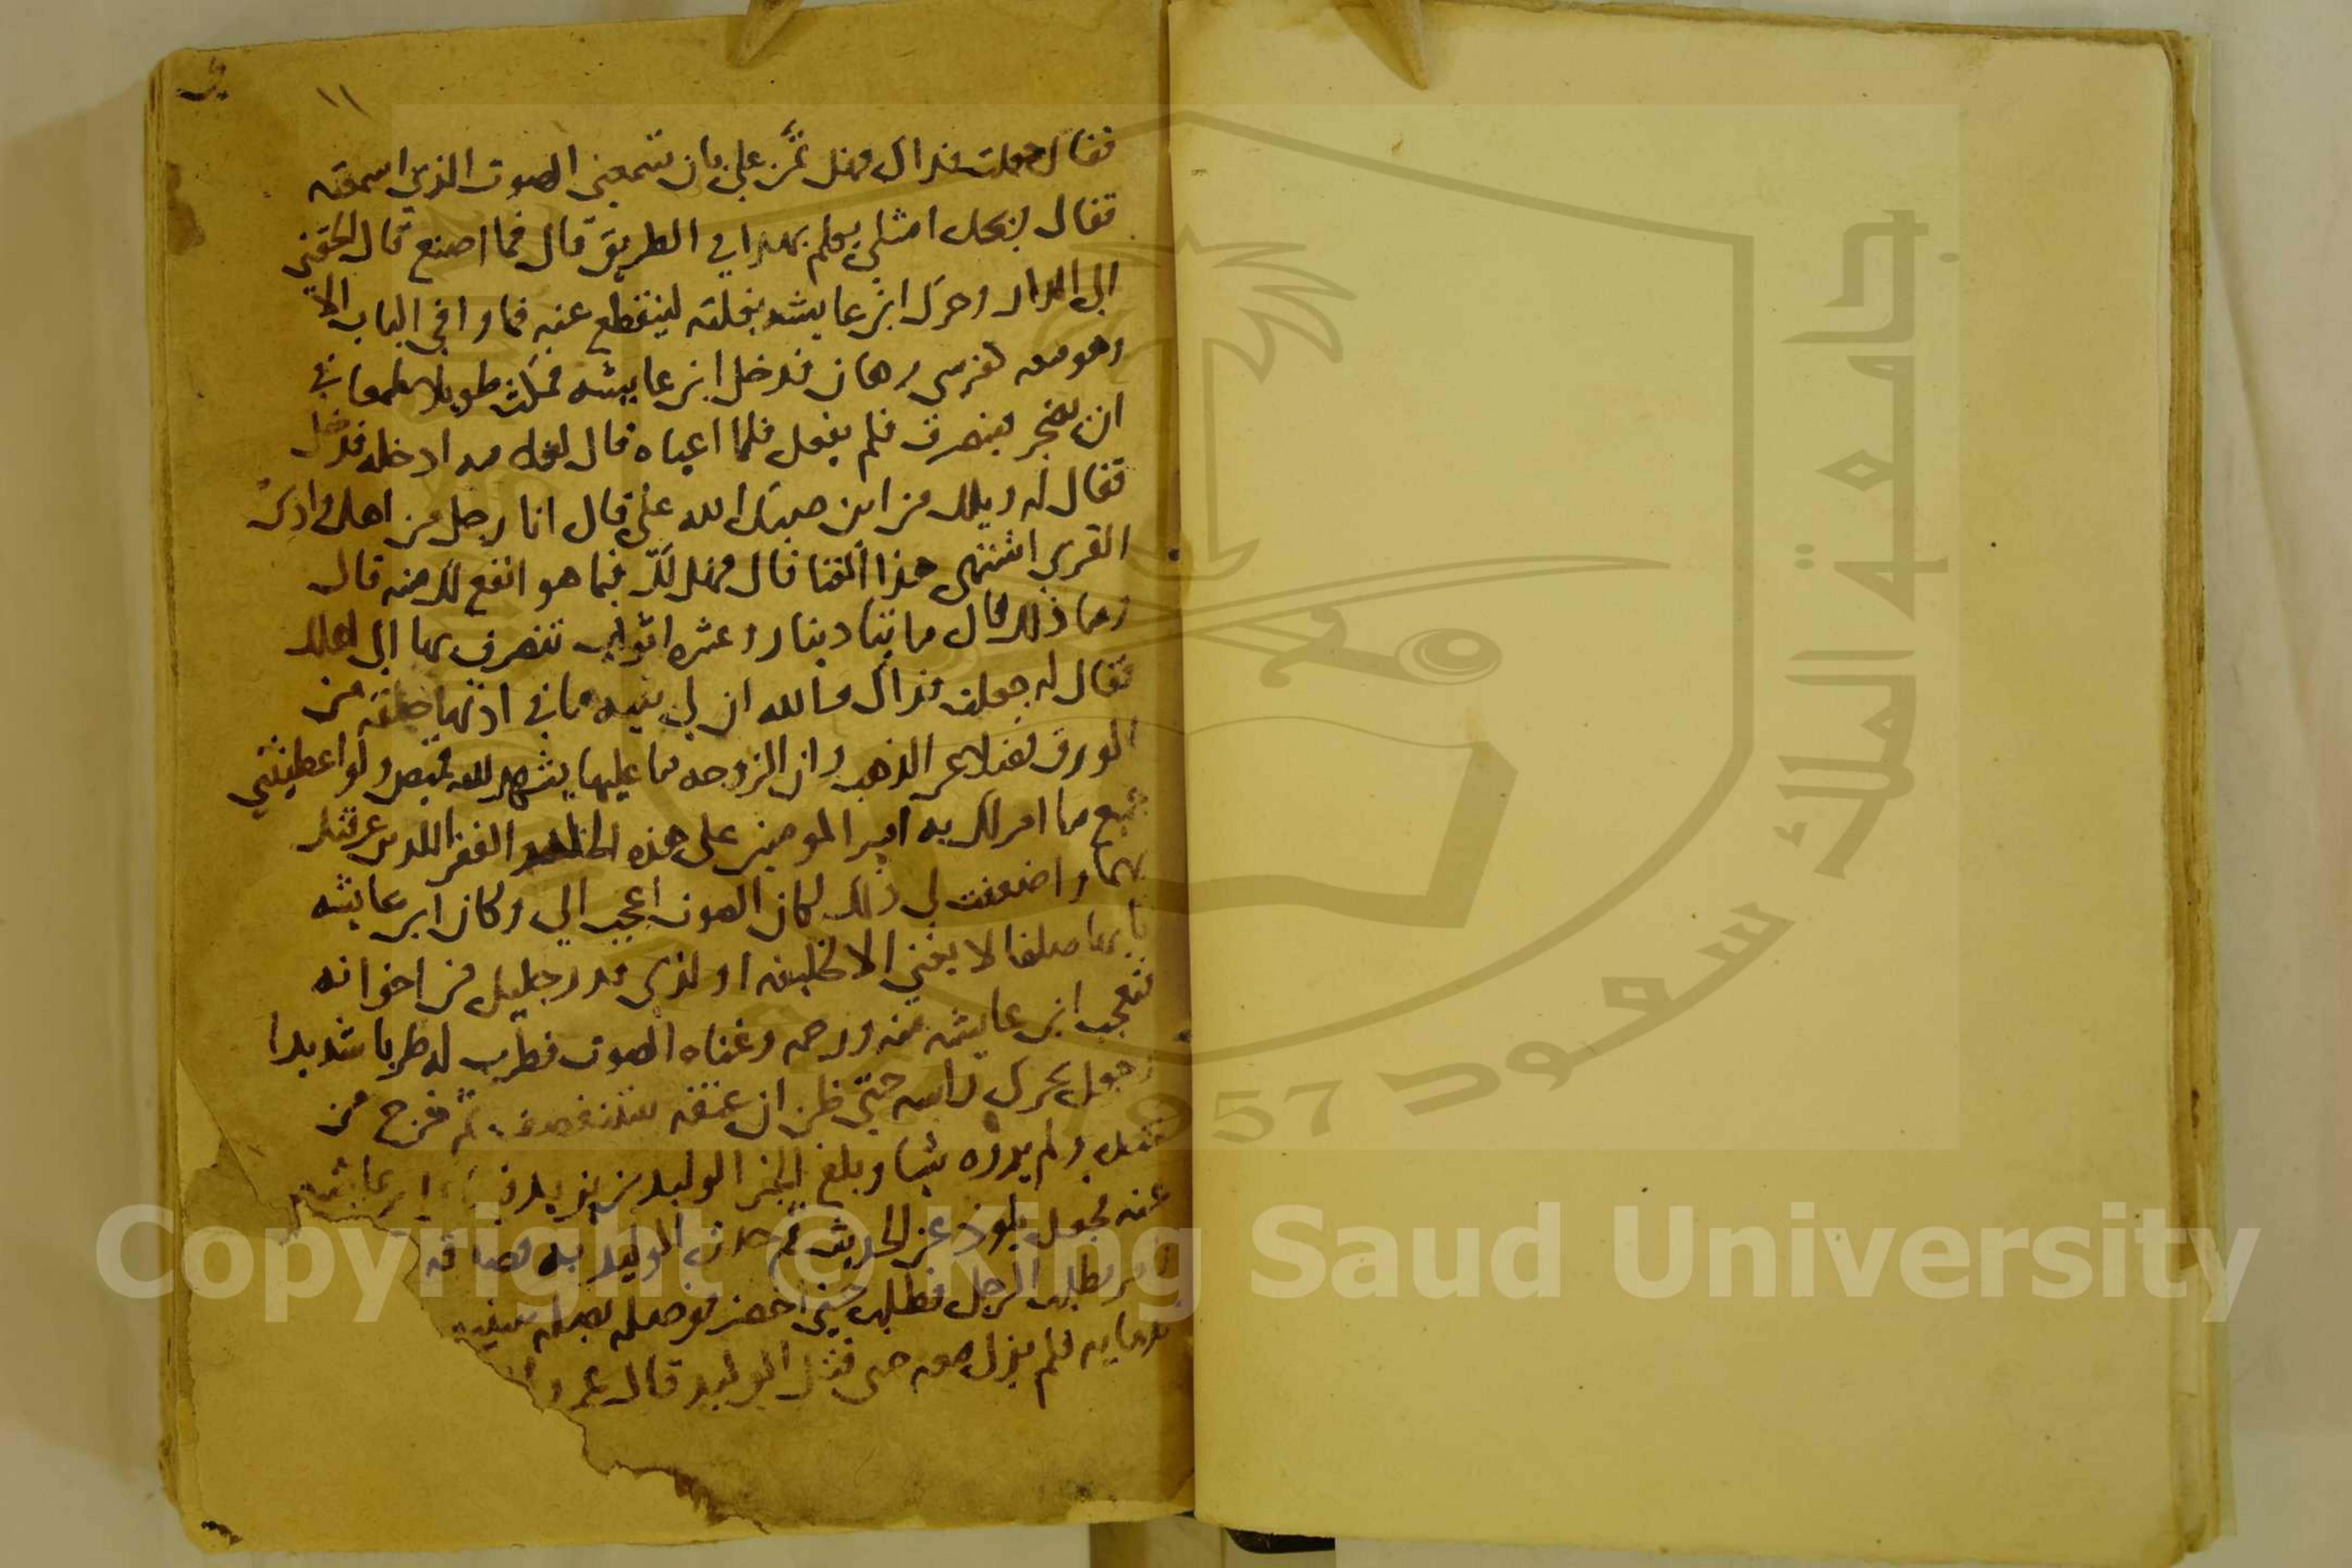 ١١
فقال جعلت فداك فهل تمن علي بان تسمعني الصوت الذي اسمعته
فقال امثلي يعلم بهذا في الطريق قال فما اصنع قال الحقني
الى الدار وحرك ابن عايشه بغلته لينقطع عنه فما وافى الباب الا
وهو معه كفرسي رهان فدخل ابن عايشه فمكث طويلا طمعا في
ان يضجر فينصرف فلم يفعل فلما اعياه قال ادخله فدخل
فقال له ويلك من اين صبك الله علي قال انا رجل من اهل وادي
القرى اشتهي هذا الغنا قال فهل لك فيما هو انفع لك منه قال
وما ذلك قال مايتا دينار وعشره اثواب تنصرف بها الى اهلك
فقال له جعلت فداك والله ان لي بنيه ما في اذنها حلقه من
الورق فضلا عن الذهب وان لي زوجه ما عليها يشهد الله قميص ولو اعطيتني
جميع ما امر لك به امير المومنين على هذه الفقر اللذين عرفتك
بهما واضعفت لي ذلك لكان الصوت اعجب الي وكان ابن عايشه
تايها صلفا لا يغني الا لخليفه او لذي قدر جليل من اخوانه
فتعجب ابن عايشه منه ورحمه وغناه الصوت فطرب له طربا شديدا
وجعل يحرك راسه حتى ظن ان عنقه ستنقصف ثم خرج من
عنده ولم يرزه شيا وبلغ الخبر الوليد بن يزيد ابن عايشه
عنه فجعل يلوذ عن الحديث ثم الوليد به
وامر بطلب الرجل فطلب حتى احضر فوصله صله سنيه
فلم يزل معه حتى قتل الوليد قال عمر
Copyright © King Saud University
جامعة الملك سعود
1957